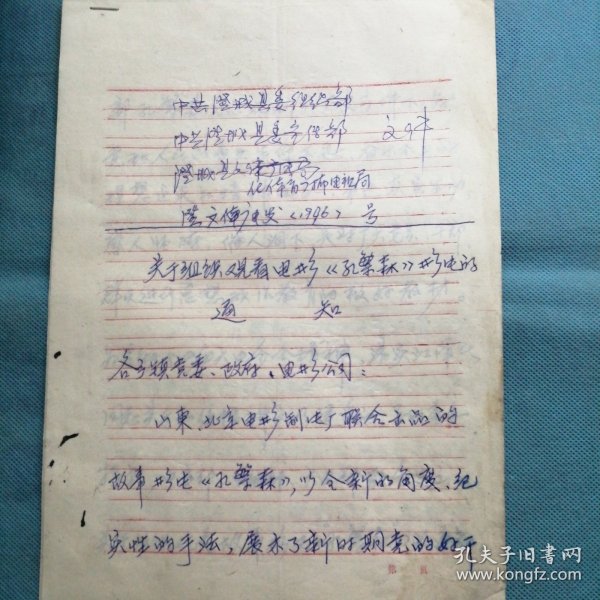 中共澄城县委组织部
中共澄城县委宣传部 文件
澄城县文
化体育广播电视局
澄文体广电发〈1996〉 号
关于组织观看电影《孔繁森》影片的
通 知
各乡镇党委、政府、电影公司：
山东、北京电影制片厂联合出品的
故事影片《孔繁森》，以全新的角度、纪
实性的手法，展示了新时期党的好干
第 页
孔夫子旧书网
www.kongfz.com